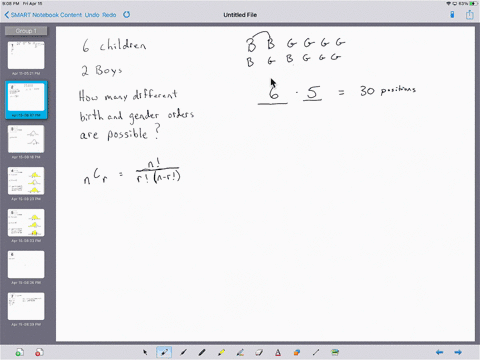 9:05 PM Fri Apr 10
SMART Notebook Content Undo Redo
Untitled File
Group 1
6 children
2 Boys
How many different
birth and gender orders
are possible?
nCr = n! / r!(n-r!)
B B G G G G
B G B G G G
6 · 5 = 30 positions